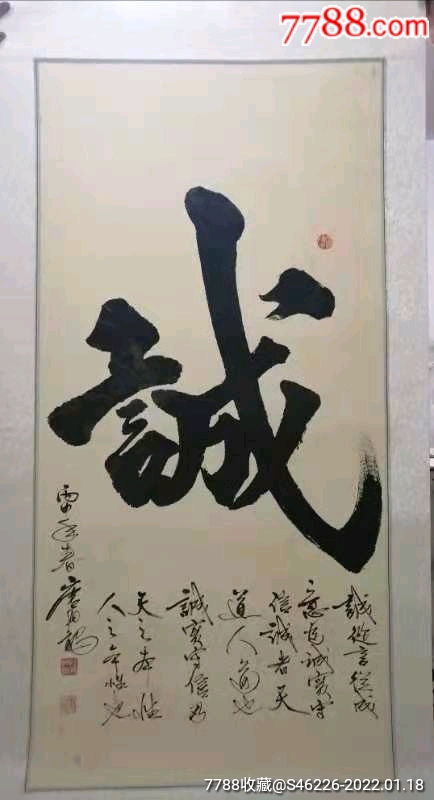 7788.com
誠
誠從言從成
意為誠實守
信誠者天
道人道也
誠實守信乃
天之本性
人之本性也
7788收藏@S46226-2022.01.18